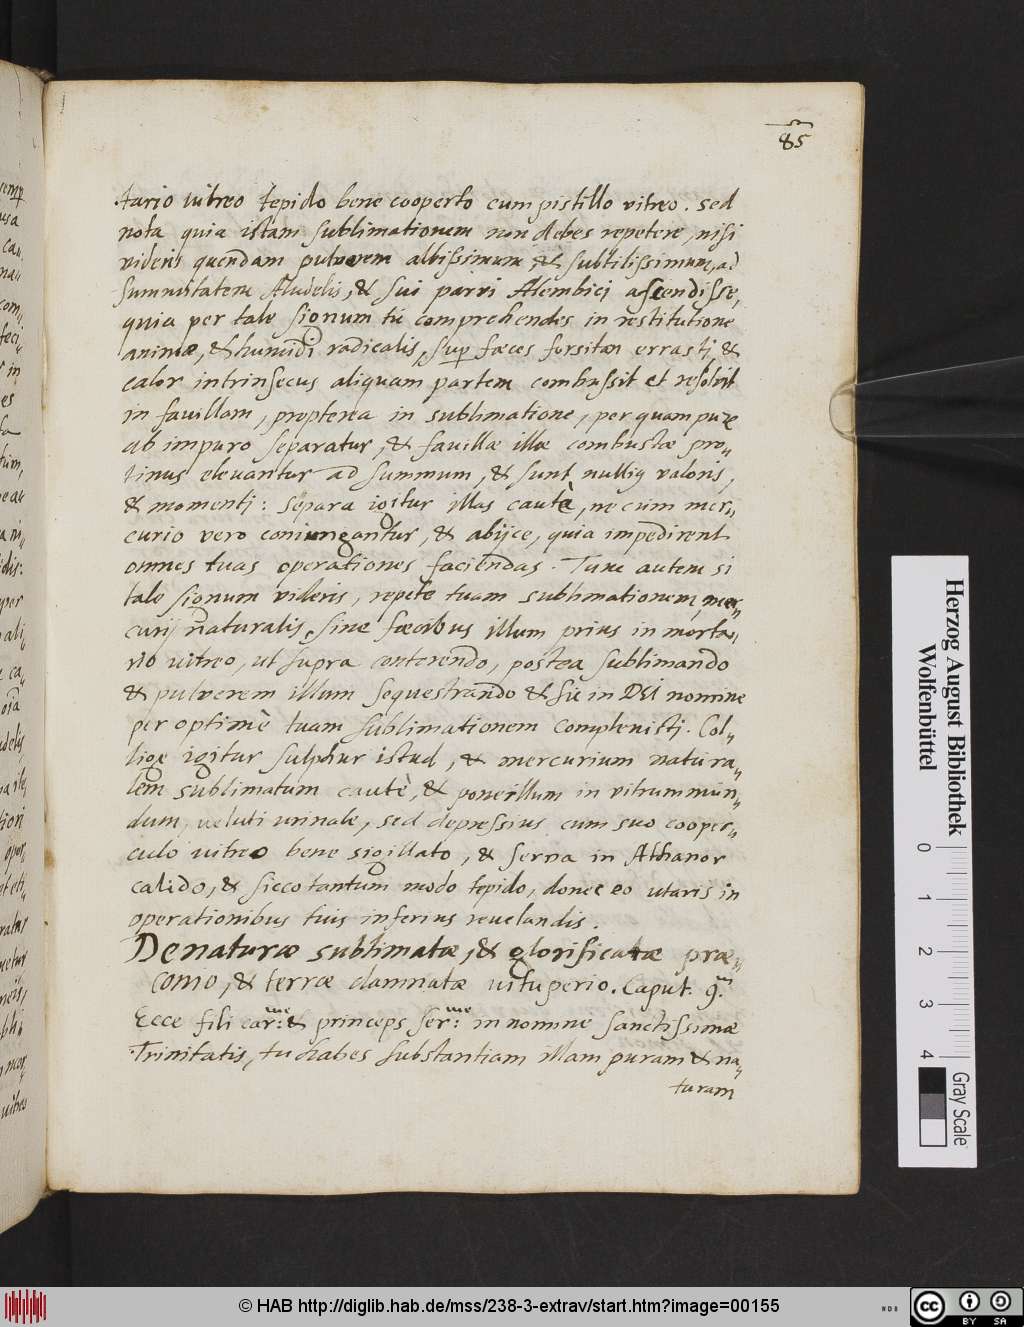 85
tario vitreo tepido bene cooperto cum pistillo vitreo. sed
nota quia istam sublimationem non debes repetere, nisi
videris quendam pulverem albissimum & subtilissimum, ad
summitatem Aludelis, & sui parvi Alembici ascendisse,
quia per tale signum tu comprehendes in restitutione
animæ, & humidi radicalis, sup fæces forsitan errasti, &
calor intrinsecus aliquam partem combussit et resolvit
in favillam, propterea in sublimatione, per quam pure
ab impuro separatur, & favillæ illæ combustæ pro„
tinus elevantur ad summum, & sunt nullis valoris,
& momentj: Separa igitur illas cautè, ne cum mer„
curio vero coniungantur, & abijce, quia impedirent
omnes tuas operationes faciendas. Tunc autem si
tale signum videris, repete tuam sublimationem, mer„
curij naturalis, sine fæcibus illum prius in morta„
rio vitreo, ut supra conterendo, postea sublimando
& pulverem illum sequestrando & sic in DEI nomine
per optimè tuam sublimationem complevistj. Col„
lige igitur sulphur istud, & mercurium natura„
lem sublimatum cautè, & pone illum in vitrum mun„
dum, veluti urinale, sed depressius cum suo cooper„
culo vitreo bene sigillato, & serva in Athanor
calido, & sicco tantum modo tepido, donec eo utaris in
operationibus tuis inferius revelandis.
De naturæ sublimatæ, & glorificatæ præ„
conio, & terræ damnatæ vituperio. Caput. 9.m
Ecce fili car:me & princeps ser:me in nomine sanctissimæ
Trinitatis, tu habes substantiam illam puram & na„
turam
Herzog August Bibliothek
Wolfenbüttel
0
1
2
3
4
Gray Scale
© HAB http://diglib.hab.de/mss/238-3-extrav/start.htm?image=00155
cc
BY SA